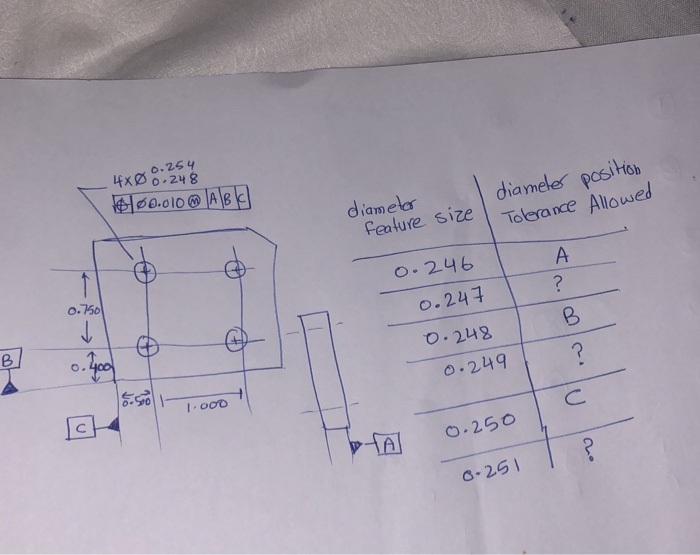 4X Ø 0.254
0.248
⌖ Ø0.010 Ⓜ A B C
0.750
0.400
B
0.500
1.000
C
A
diameter feature size
diameter position Tolerance Allowed
0.246 A
0.247 ?
0.248 B
0.249 ?
0.250 C
0.251 ?